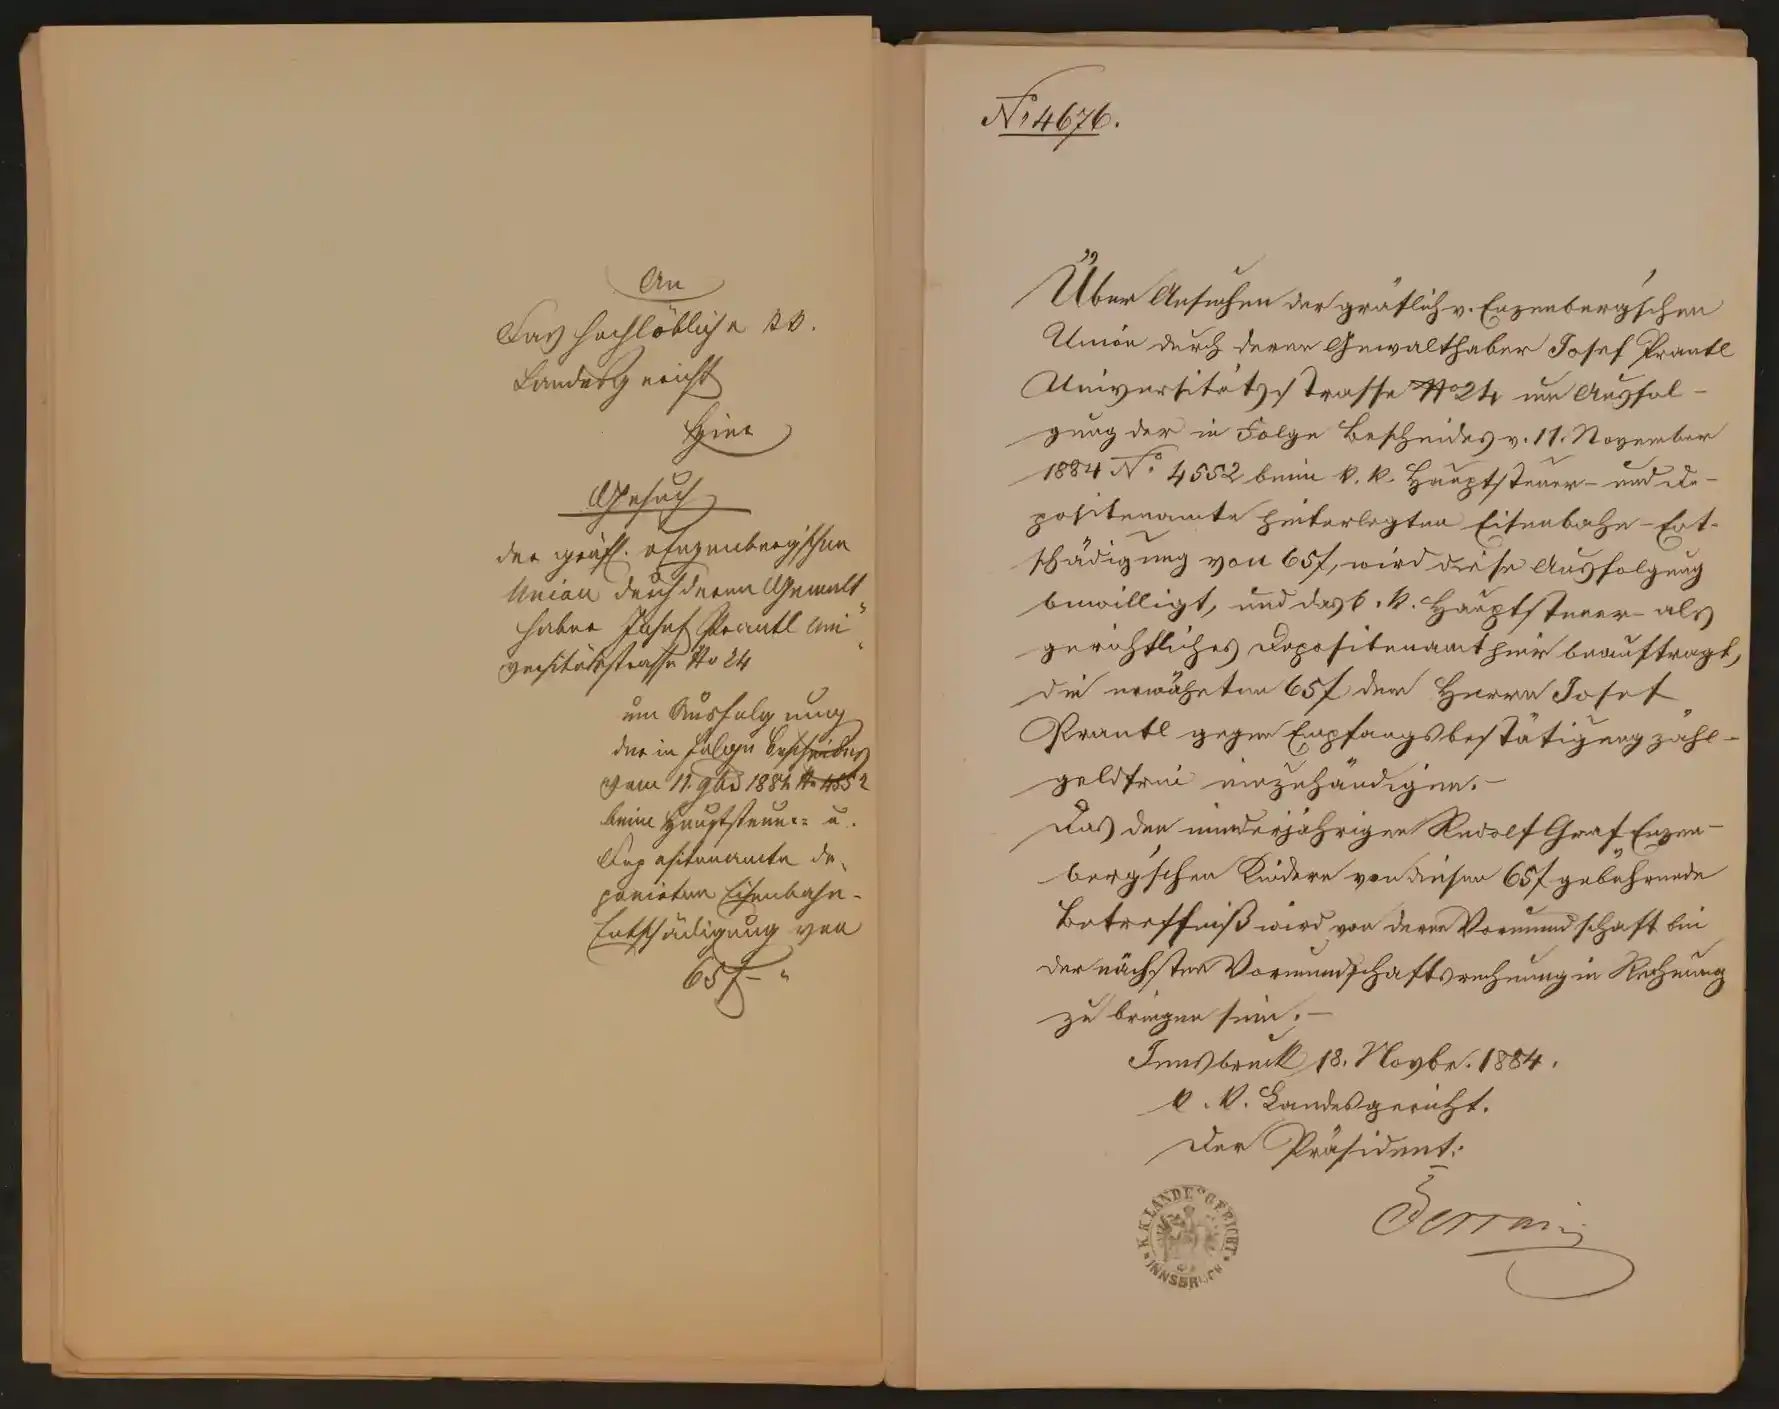 An
Das hochlöbliche k.k.
Landesgericht
Hier
Gesuch
der gräfl. v Enzenbergischen
Union durch deren Gewalt
haber Josef Prantl Uni„
„versitätsstrasse No 24
um Ausfolgung
der in Folge Bescheides
vom 11. 9br 1884 No 4552
beim Hauptsteuer= u.
Depositenamte de„
ponirten Eisenbahn-
Entschädigung von
65 f – „
No 4676.
Über Ansuchen der gräflich v. Enzenberg'schen
Union durch deren Gewalthaber Josef Prantl
Universitätsstrasse No 24 um Ausfol-
gung der in Folge Bescheides v. 11. November
1884 No. 4552 beim k. k. Hauptsteuer- und De-
positenamte hinterlegten Eisenbahn-Ent-
schädigung von 65 f, wird diese Ausfolgung
bewilligt, und das k. k. Hauptsteuer- als
gerichtliches Depositenamt hier beauftragt,
die erwähnten 65 f dem Herrn Josef
Prantl gegen Empfangsbestätigung zähl-
geldfrei einzuhändigen. –
Das den minderjährigen Rudolf Graf Enzen-
berg'schen Kindern von diesen 65 f gebührende
Betreffniß wird von deren Vormundschaft bei
der nächsten Vormundschaftsrechnung in Rechnung
zu bringen sein. –
Innsbruck 18. Novbr. 1884.
k. k. Landesgericht.
Der Präsident:
K.K. LANDESGERICHT
INNSBRUCK